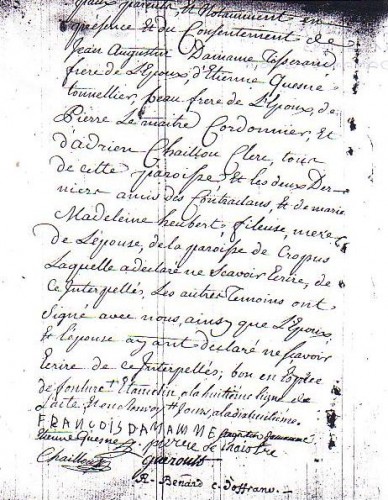 parents, et Notamment en
presence et du Consentement de
Jean Augustin Damame Tisserand
frere de L'Epoux, d'Etienne Quesné
tonnellier, beau frere de L'Epoux, de
Pierre Le maitre Cordonnier, et
d'adrien Chaillou Clerc, tous
de cette paroisse et les deux Der-
niers amis des Contractans, et de marie
Madeleine heubert fileuse, mere
de L'épouse, de la paroisse de Cropus
Laquelle a declaré ne Scavoir Ecrire, de
ce Interpellée, Les autres Temoins ont
Signé avec nous, ainsy que L'Epoux,
et L'épouse ayant declaré ne scavoir
Ecrire de ce Interpellée, bon en
a la huitieme ligne de
L'acte et en
FRANÇOIS DAMAMNE
Etienne Quesne pierre le maistre
Chaillou
Benard c. d'offranv.